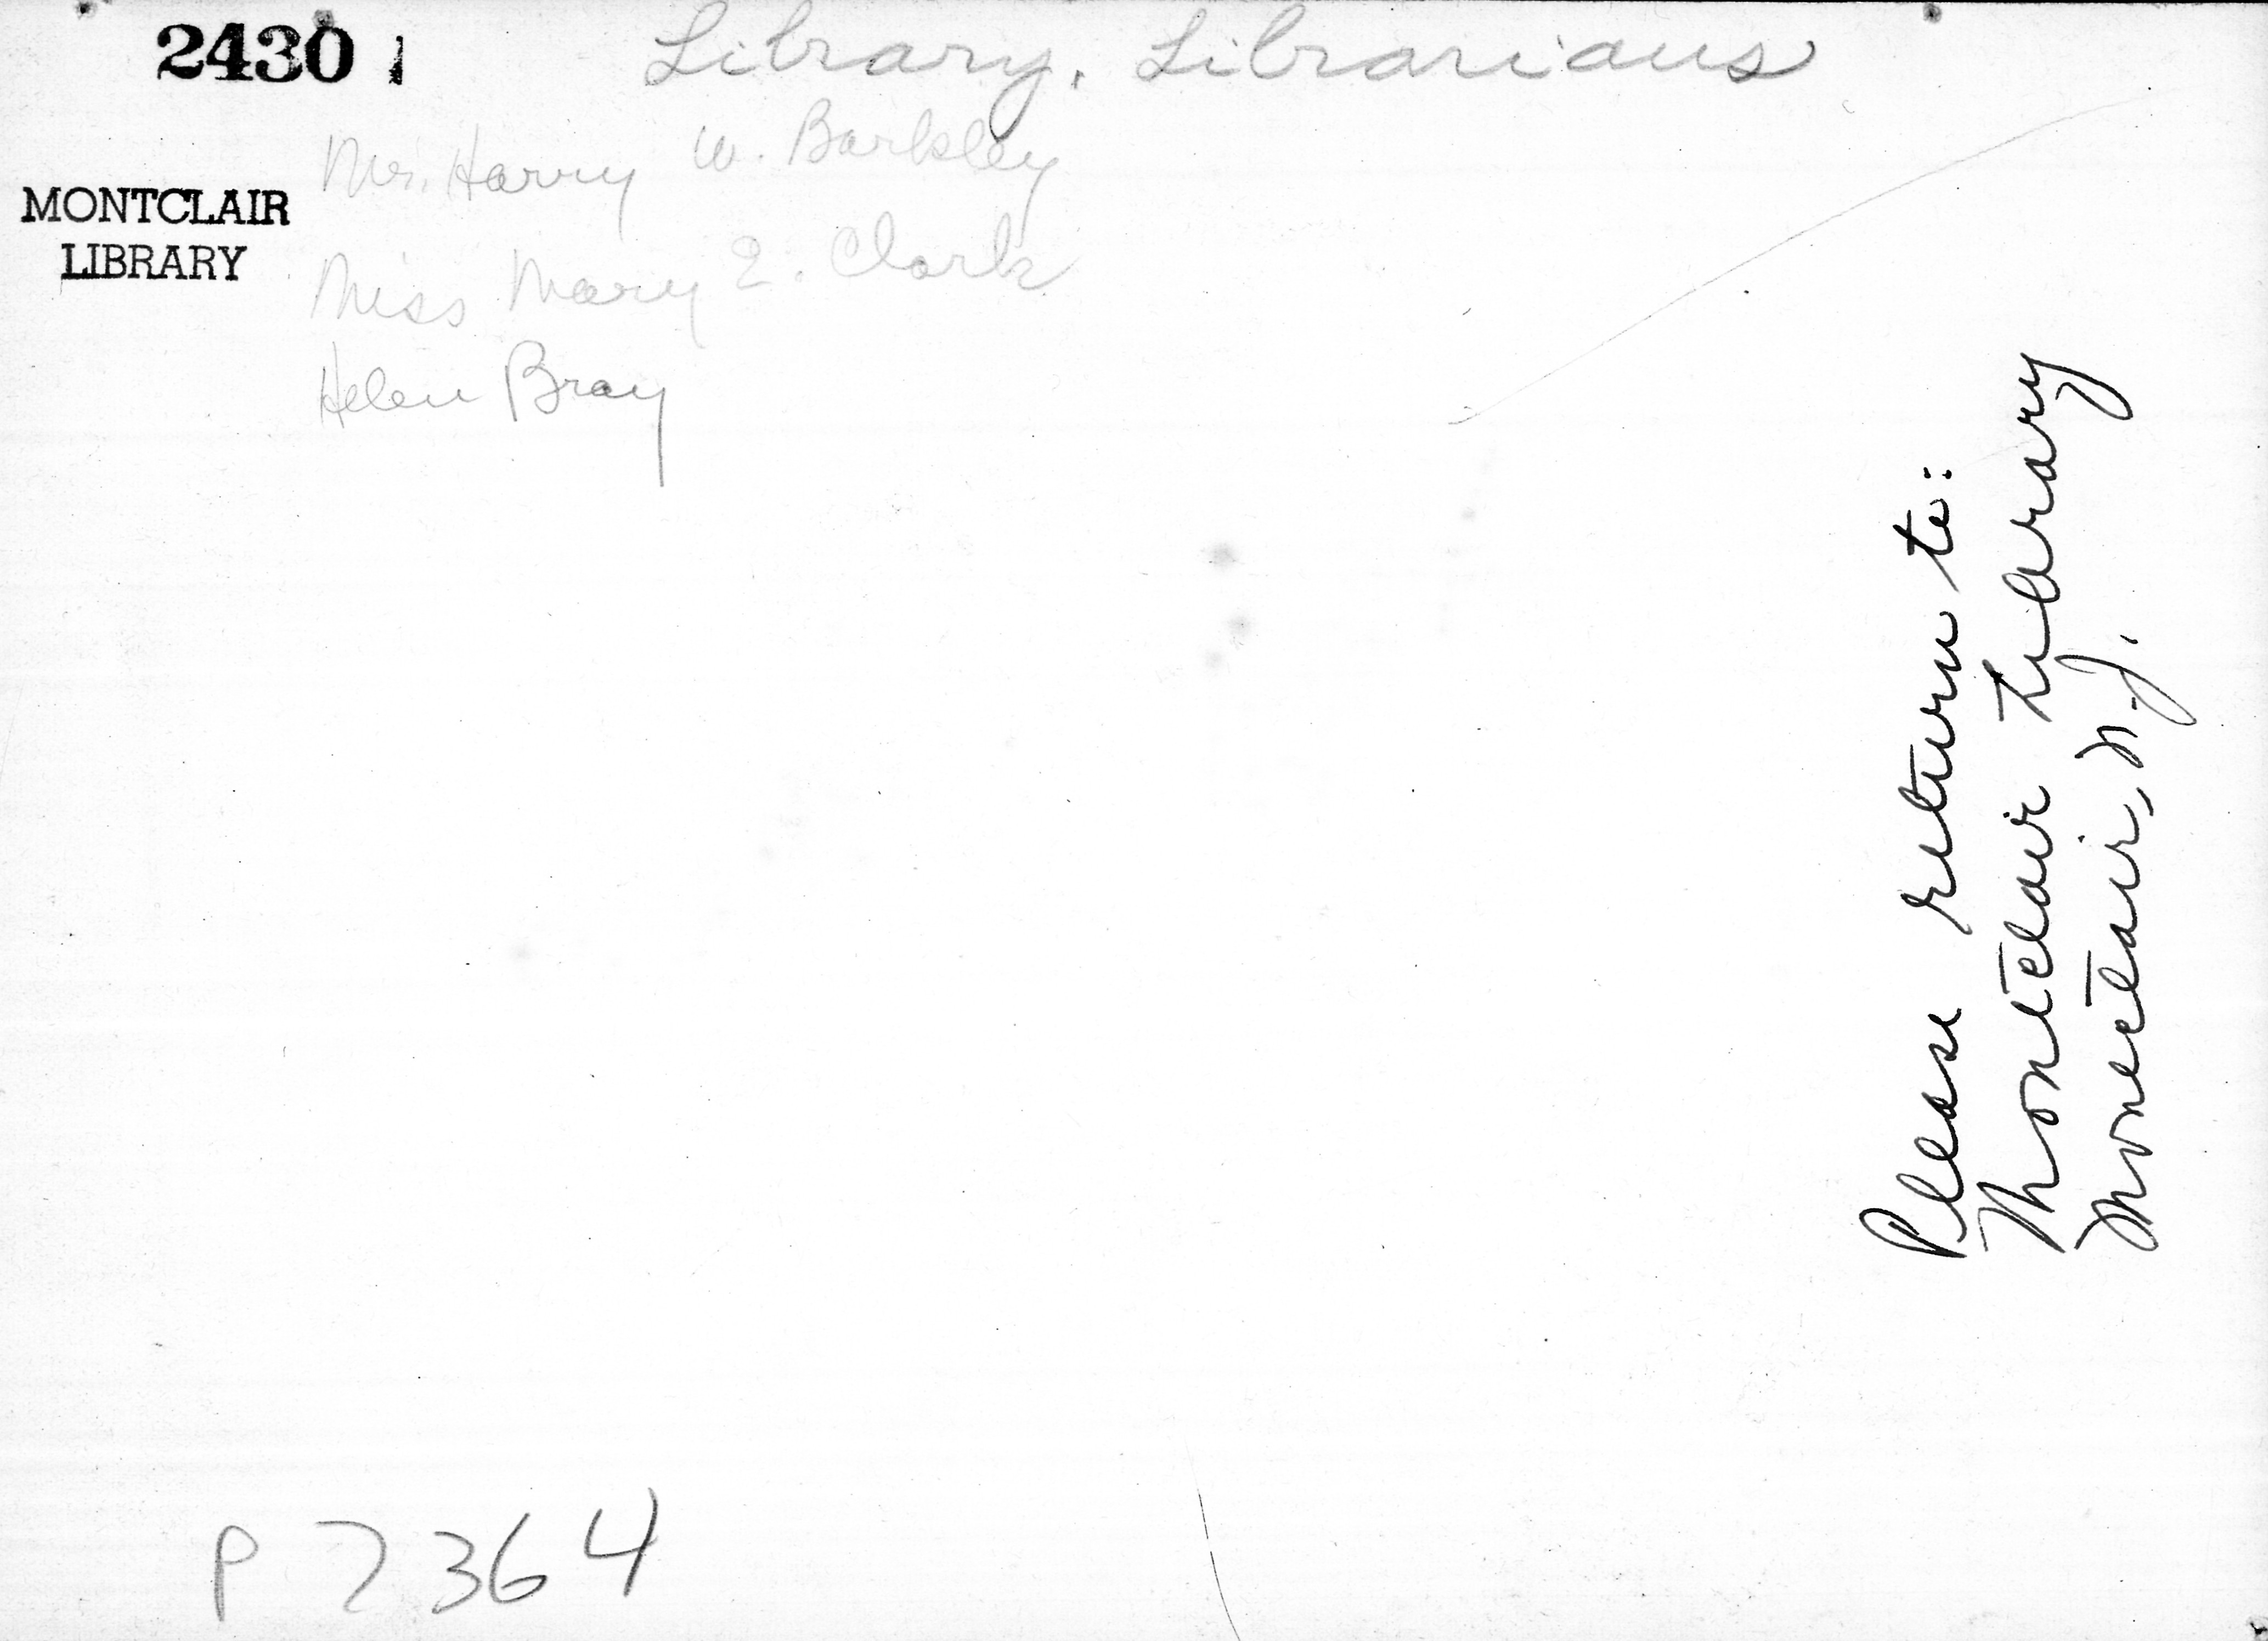 2430 1
Library, Librarians
Mr. Harry W. Barkley
MONTCLAIR
LIBRARY
Miss Mary E. Clark
Helen Bray
Please return to:
Montclair Library
Montclair, N.J.
P 7364